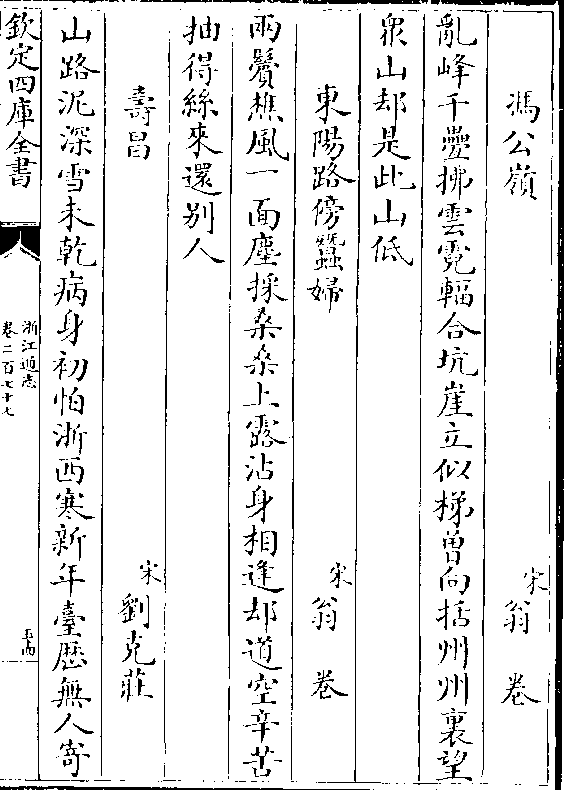 馮公嶺　宋翁卷
亂峰千疊拂雲霓輻合坑崖立似梯曽向括州州裏望
衆山却是此山低
東陽路傍蠶婦　宋翁卷
兩鬢樵風一面塵採桑桑上露沾身相逢却道空辛苦
抽得絲來還别人
壽昌　宋劉克莊
山路泥深雪未乾病身初怕浙西寒新年臺厯無人寄
欽定四庫全書
浙江通志
卷二百七十七